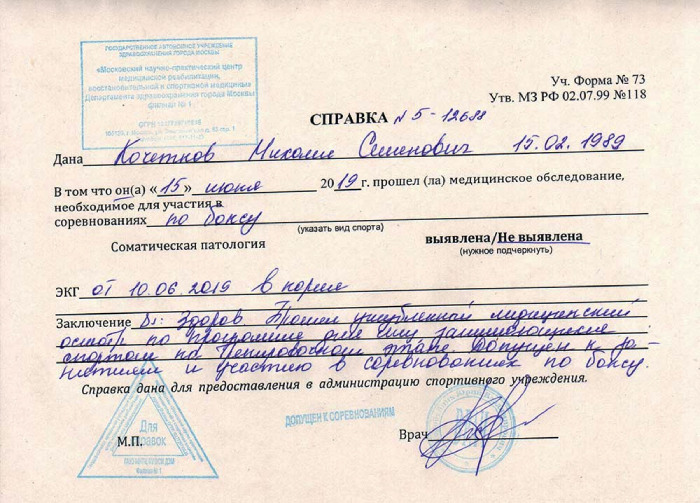 ГОСУДАРСТВЕННОЕ АВТОНОМНОЕ УЧРЕЖДЕНИЕ
ЗДРАВООХРАНЕНИЯ ГОРОДА МОСКВЫ
«Московский научно-практический центр
медицинской реабилитации,
восстановительной и спортивной медицины
Департамента здравоохранения города Москвы
филиал № 1
Уч. Форма № 73
Утв. МЗ РФ 02.07.99 №118
СПРАВКА № 5-12688
Дана Кочетков Семенович 15.02.1989
В том что он(а) «15» июня 2019 г. прошел (ла) медицинское обследование,
необходимое для участия в
соревнованиях по боксу
(указать вид спорта)
Соматическая патология выявлена/Не выявлена
(нужное подчеркнуть)
ЭКГ от 10.06.2019 в норме
Заключение Ds: Здоров. Прошел углубленный медицинский
осмотр по программе для лиц занимающиеся
спортом на тренировочном этапе. Допущен к за-
нятиям и участию в соревнованиях по боксу.
Справка дана для предоставления в администрацию спортивного учреждения.
Для
справок
М.П.
ДОПУЩЕН К СОРЕВНОВАНИЯМ
Врач